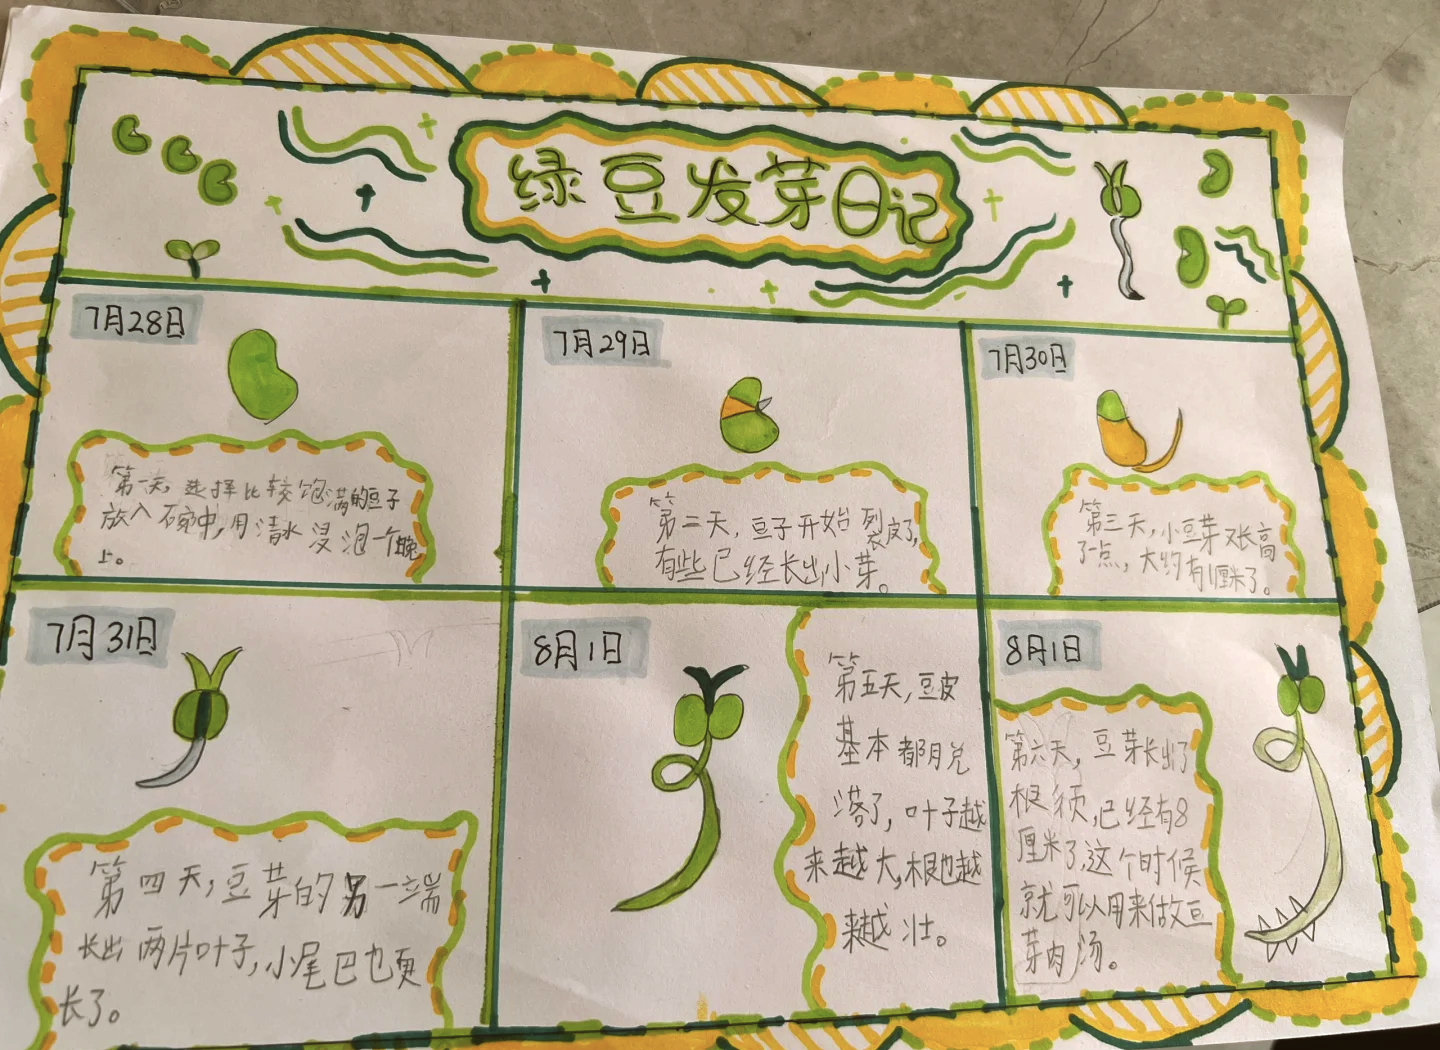 绿豆发芽日记
7月28日
第一天，选择比较饱满的豆子
放入碗中，用清水浸泡一个晚
上。
7月29日
第二天，豆子开始裂皮了，
有些已经长出小芽。
7月30日
第三天，小豆芽又长高
了一点，大约有1厘米了。
7月31日
第四天，豆芽的另一端
长出两片叶子，小尾巴也更
长了。
8月1日
第五天，豆皮
基本都脱
落了，叶子越
来越大，根也越
来越壮。
8月1日
第六天，豆芽长出了
根须，已经有8
厘米了，这个时候
就可以用来做豆
芽肉汤。